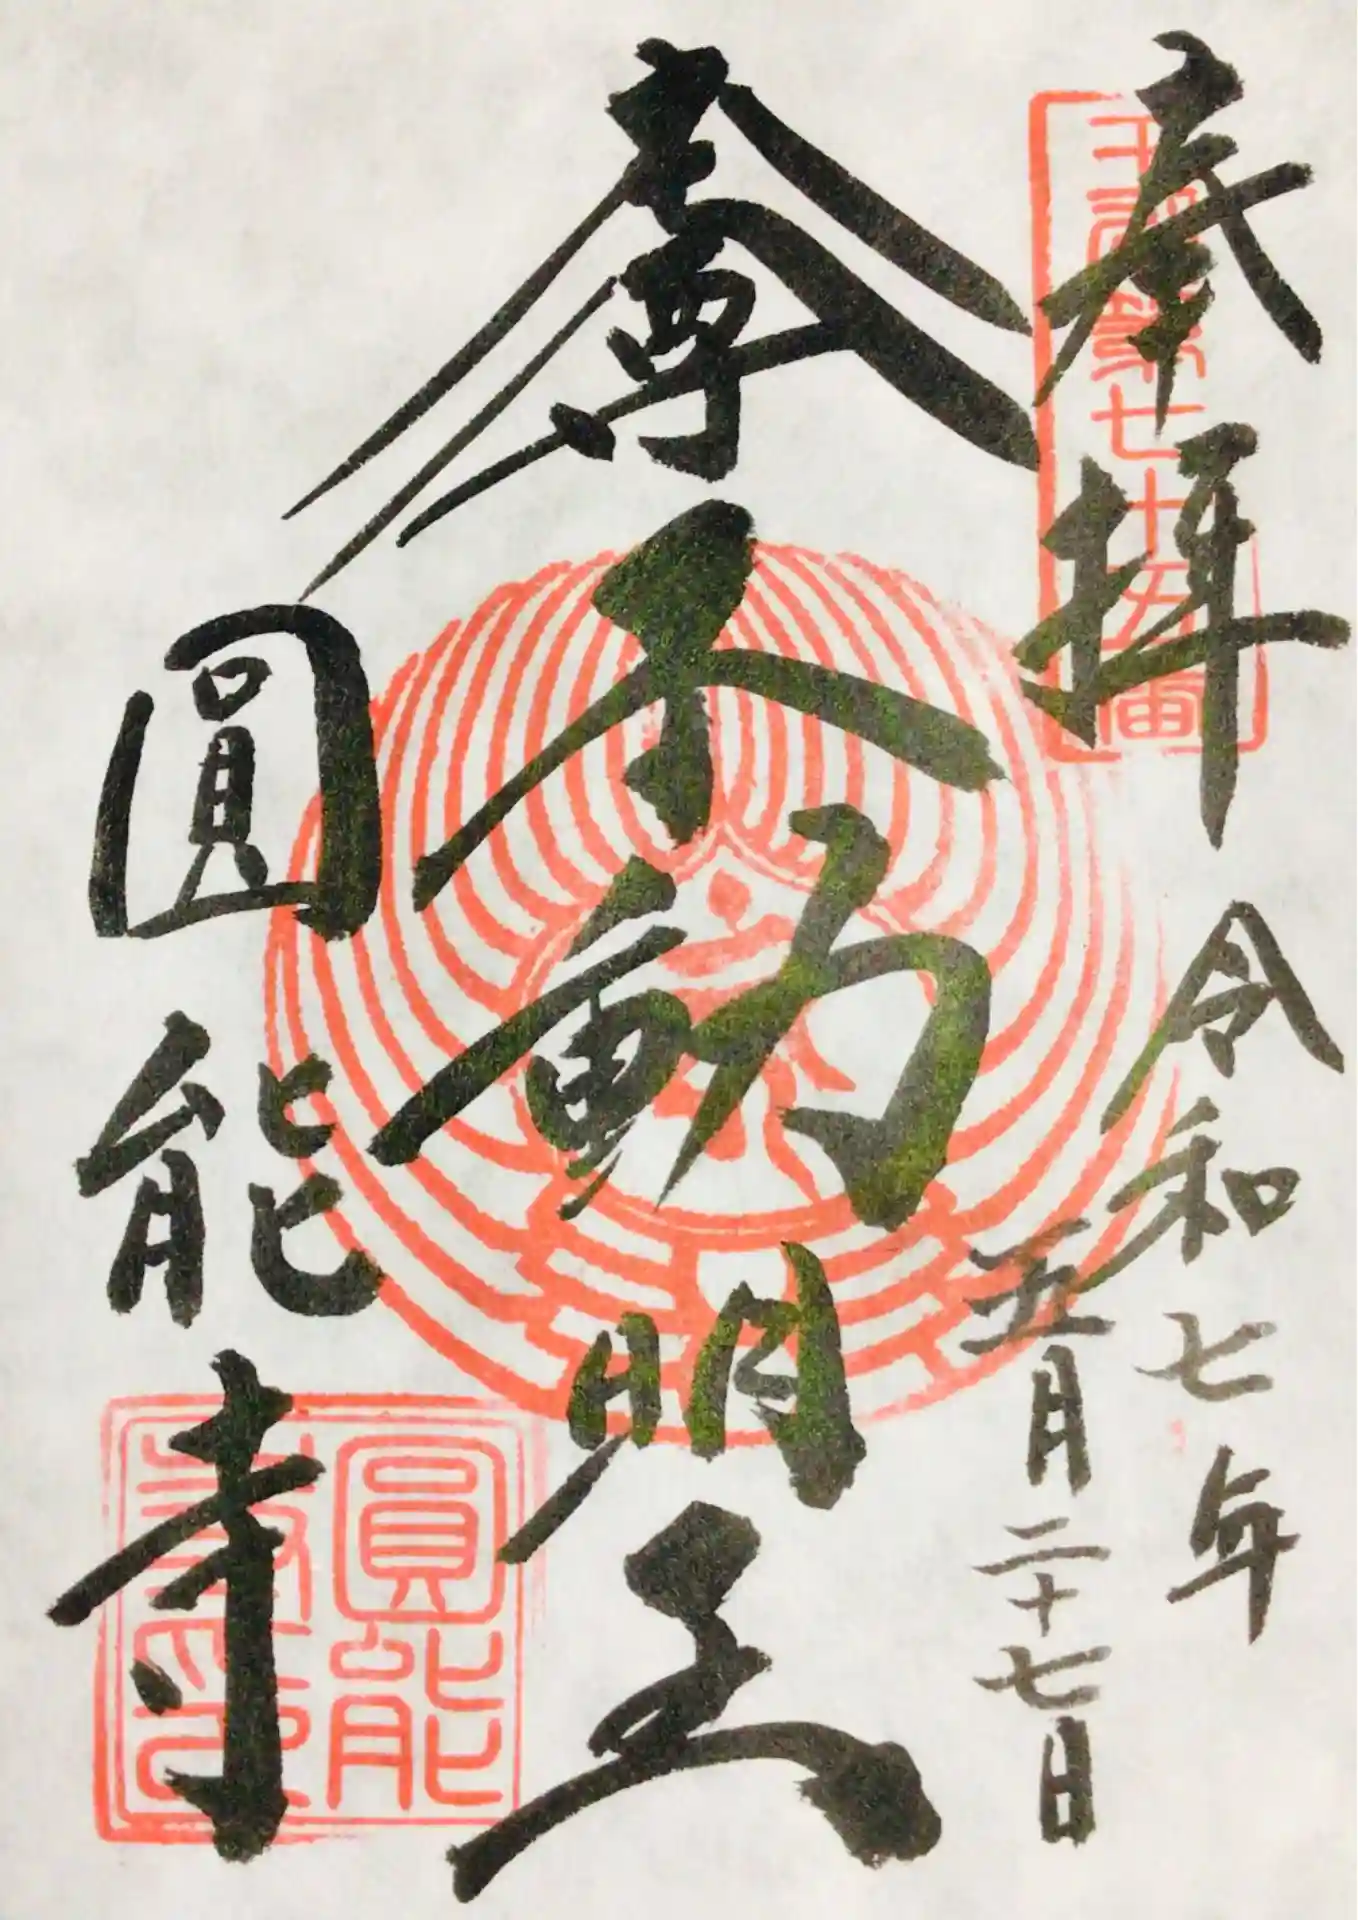 奉拝
令和七年
五月二十七日
本尊不動明王
圓能寺
第七十五番
圓能寺印